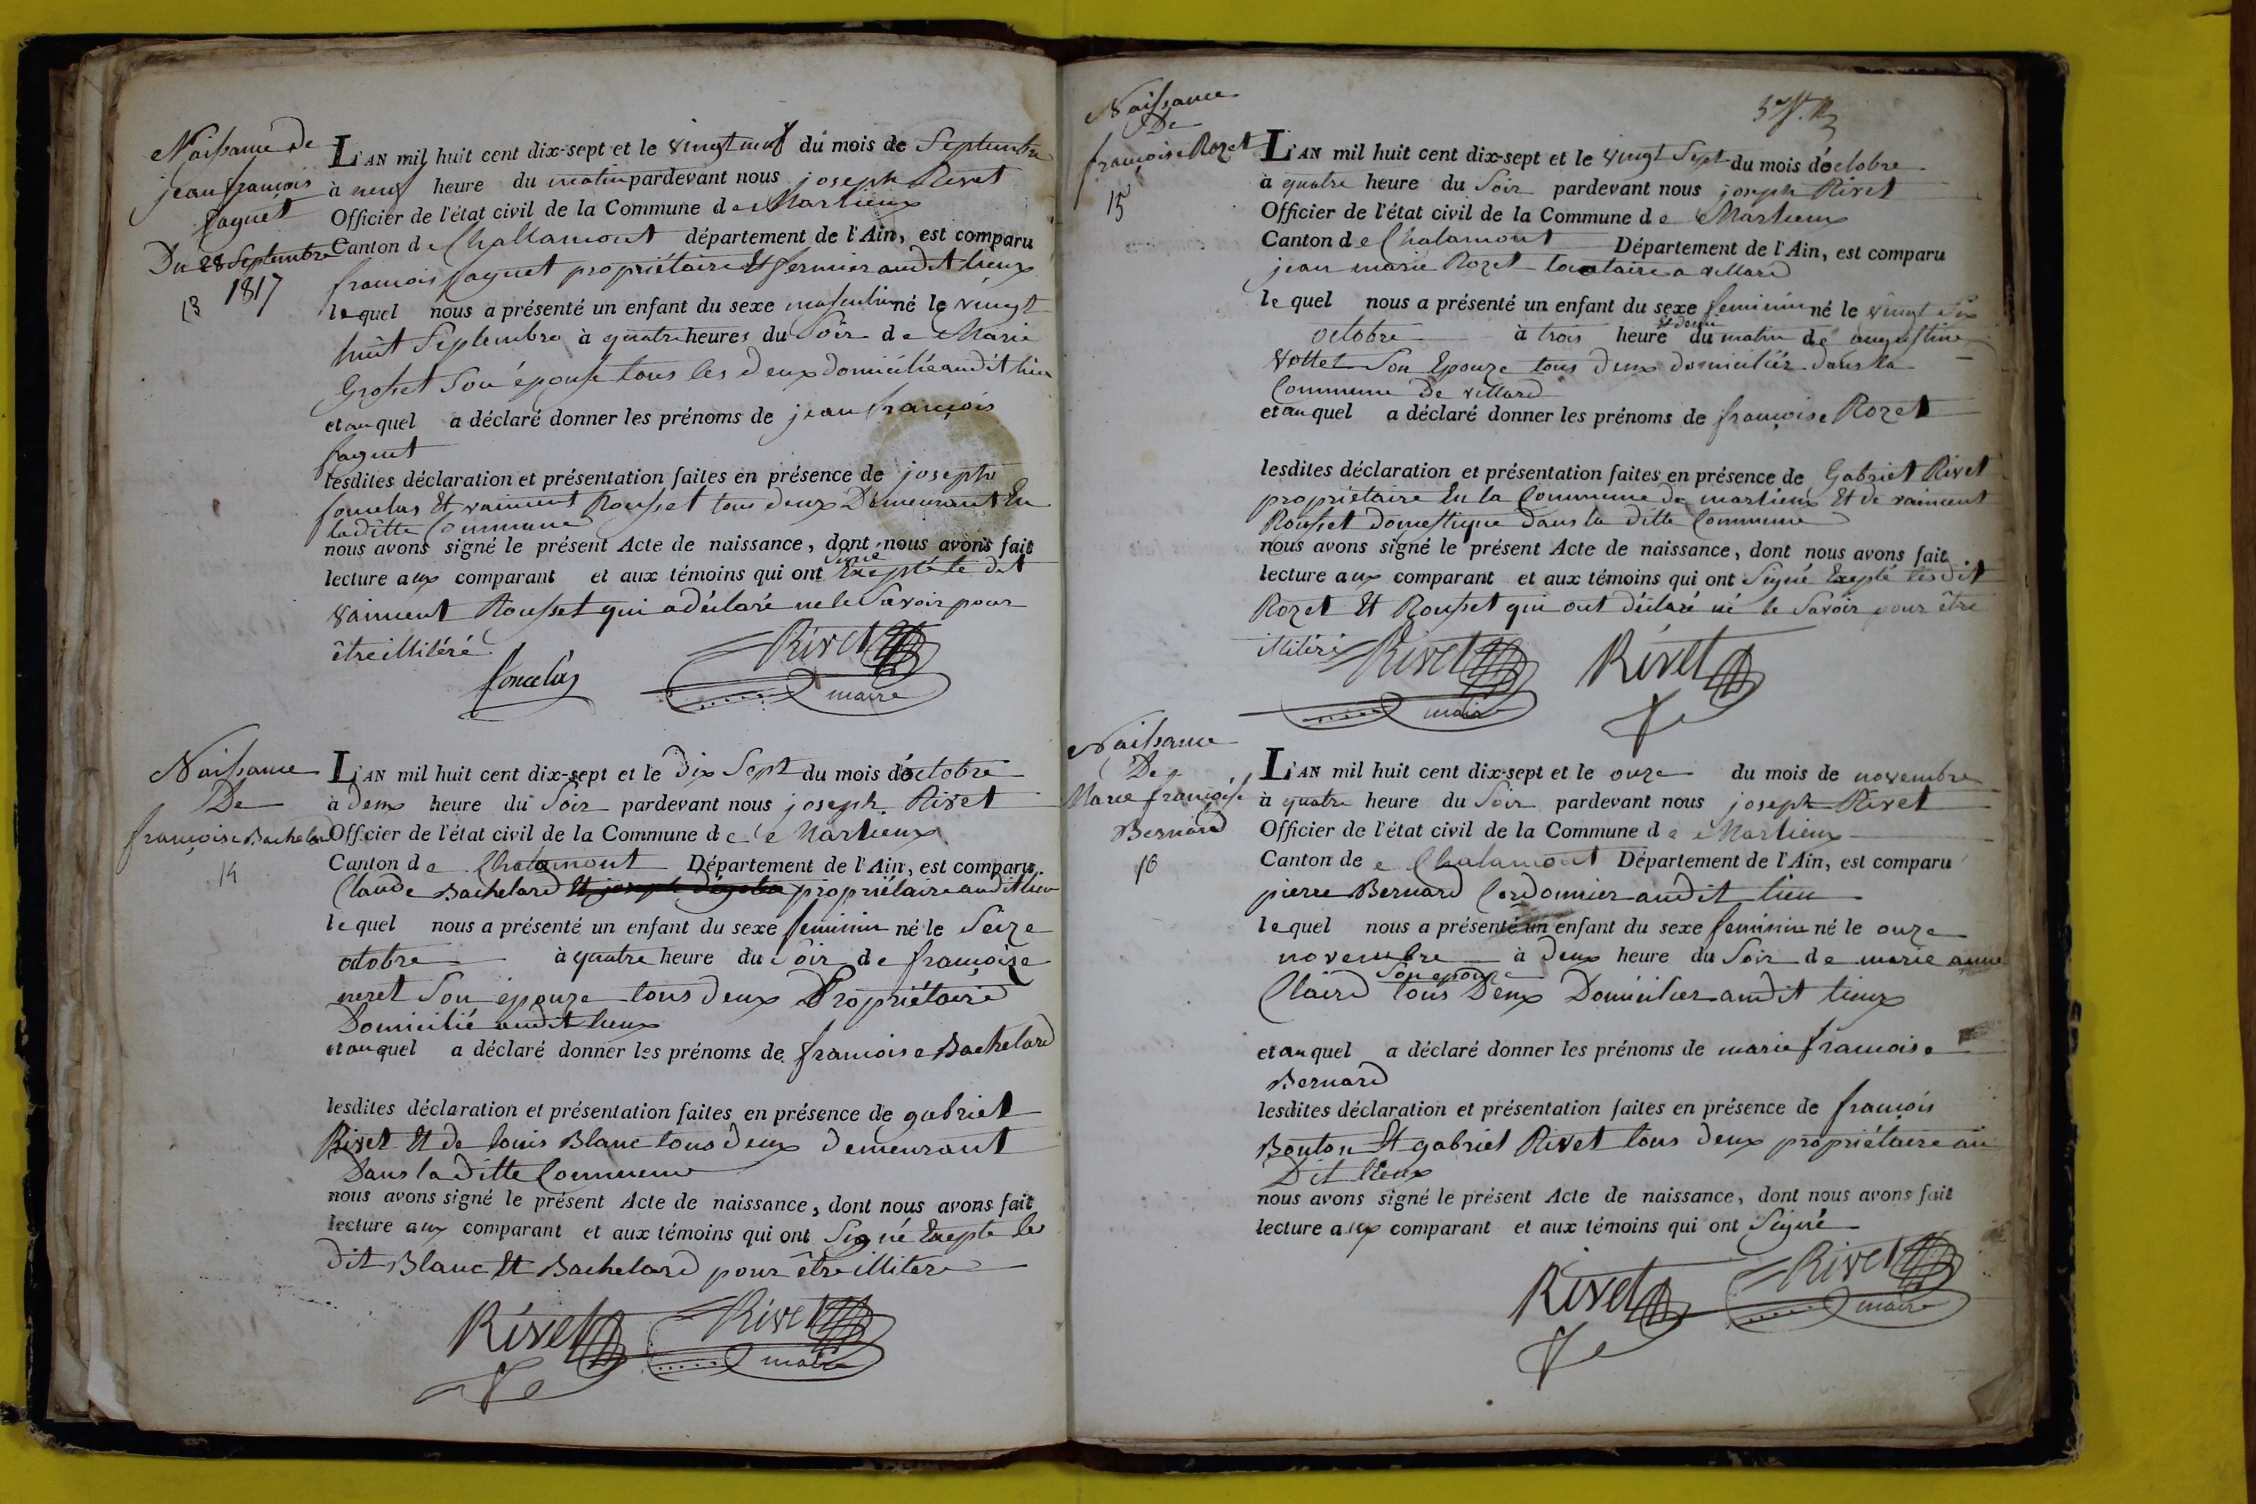 Naissance de
jean françois
paquet
Du 28 Septembre
1817
13
L'AN mil huit cent dix-sept et le vingt neuf du mois de Septembre
à neuf heure du matin pardevant nous joseph Rivet
Officier de l'état civil de la Commune de Marlieux
Canton de Challamont département de l'Ain, est comparu
francois paquet propriétaire Et fermier audit lieux
lequel nous a présenté un enfant du sexe masculin né le vingt
huit Septembre à quatre heures du Soir de Marie
Grosset Son épouse tous les deux domicilié audit lieu
et auquel a déclaré donner les prénoms de jean françois
paquet
lesdites déclaration et présentation faites en présence de joseph
foncelas Et vaincent Rousset tous deux Demeurant En
la ditte Commune
nous avons signé le présent Acte de naissance, dont nous avons fait
lecture aux comparant et aux témoins qui ont Signé Excepté le dit
vaincent Rousset qui a déclaré ne le Savoir pour
être illitéré.
foncelas Rivet
maire
Naissance
De
françoise Bachelard
14
L'AN mil huit cent dix-sept et le dix Sept du mois d'octobre
à deux heure du Soir pardevant nous joseph Rivet
Officier de l'état civil de la Commune de Marlieux
Canton de Chalamont Département de l'Ain, est comparu
Claude Bachelard propriétaire audit lieu
lequel nous a présenté un enfant du sexe feminin né le Seize
octobre à quatre heure du Soir de françoise
neret Son épouze tous deux Propriétaire
Domicilié audit lieux
et auquel a déclaré donner les prénoms de francoise Bachelard
lesdites déclaration et présentation faites en présence de gabriel
Rivet Et de louis Blanc tous deux demeurant
Dans la Ditte Commune
nous avons signé le présent Acte de naissance, dont nous avons fait
lecture aux comparant et aux témoins qui ont Signé Excepte les
dit Blanc Et Bachelard pour être illitere
Rivet Rivet
maire
Naissance
De
françoise Rozet
15
L'AN mil huit cent dix-sept et le vingt Sept du mois d'octobre
à quatre heure du Soir pardevant nous joseph Rivet
Officier de l'état civil de la Commune de Marlieux
Canton de Chalamont Département de l'Ain, est comparu
jean marie Rozet locataire a villard
lequel nous a présenté un enfant du sexe feminin né le vingt Six
octobre à trois heure et demie du matin de augustine
vottet Son Epouze tous deux domiciliés dans la
Commune De villard
et auquel a déclaré donner les prénoms de françoise Rozet
lesdites déclaration et présentation faites en présence de Gabriel Rivet
propriétaire En la Commune de marlieux Et de vaincent
Rousset domestique dans la ditte Commune
nous avons signé le présent Acte de naissance, dont nous avons fait
lecture aux comparant et aux témoins qui ont Signé Excepté lesdit
Rozet Et Rousset qui ont déclaré né le Savoir pour être
illitéré
Rivet Rivet
maire
Naissance
De
Marie françoise
Bernard
16
L'AN mil huit cent dix-sept et le onze du mois de novembre
à quatre heure du Soir pardevant nous joseph Rivet
Officier de l'état civil de la Commune de Marlieux
Canton de Chalamont Département de l'Ain, est comparu
pierre Bernard Cordonnier audit lieu
lequel nous a présenté un enfant du sexe feminin né le onze
novembre à deux heure du Soir de marie anne
Claird Son epouze tous Deux Domicilier audit lieux
et auquel a déclaré donner les prénoms de marie francoise
Bernard
lesdites déclaration et présentation faites en présence de françois
Bouton Et gabriel Rivet tous deux propriétaire au
Dit lieux
nous avons signé le présent Acte de naissance, dont nous avons fait
lecture aux comparant et aux témoins qui ont Signé
Rivet Rivet
maire